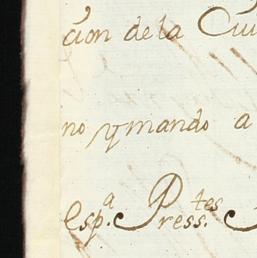 cion de la Ciu
no ymando a
esp.ª Press.tes